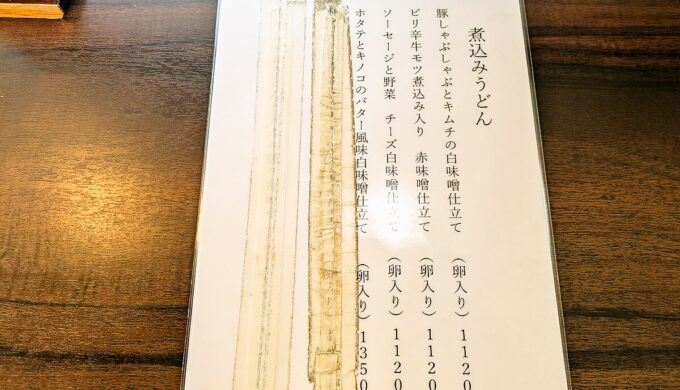 煮込みうどん
豚しゃぶしゃぶとキムチの白味噌仕立て （卵入り） 1120
ピリ辛牛モツ煮込み入り 赤味噌仕立て （卵入り） 1120
ソーセージと野菜 チーズ白味噌仕立て （卵入り） 1120
ホタテとキノコのバター風味白味噌仕立て （卵入り） 1350